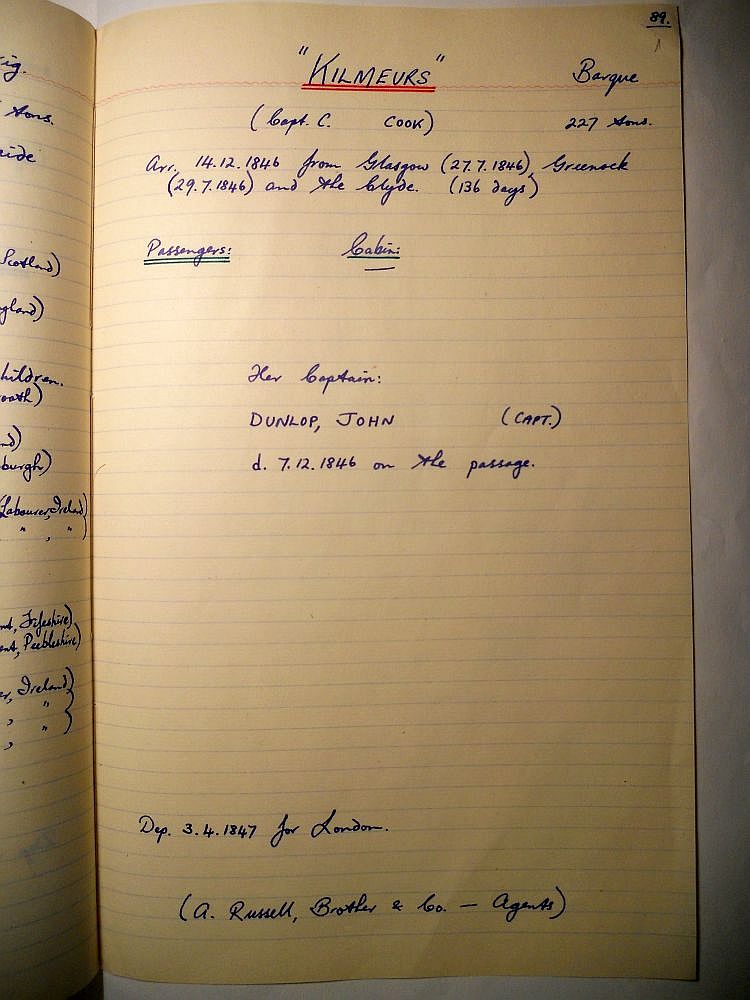 89.
"KILMEURS" Barque
(Capt. C. COOK) 227 tons.
Arr. 14.12.1846 from Glasgow (27.7.1846), Greenock
(29.7.1846) and the Clyde. (136 days)
Passengers: Cabin:
Her Captain:
DUNLOP, JOHN (CAPT.)
d. 7.12.1846 on the passage.
Dep. 3.4.1847 for London.
(A. Russell, Brother & Co. — Agents)
ig.
tons.
Scotland)
hildren.
burgh)
Labourer, Ireland)
" , "
Fifeshire)
Peebleshire)
Ireland)
, "
, "
,